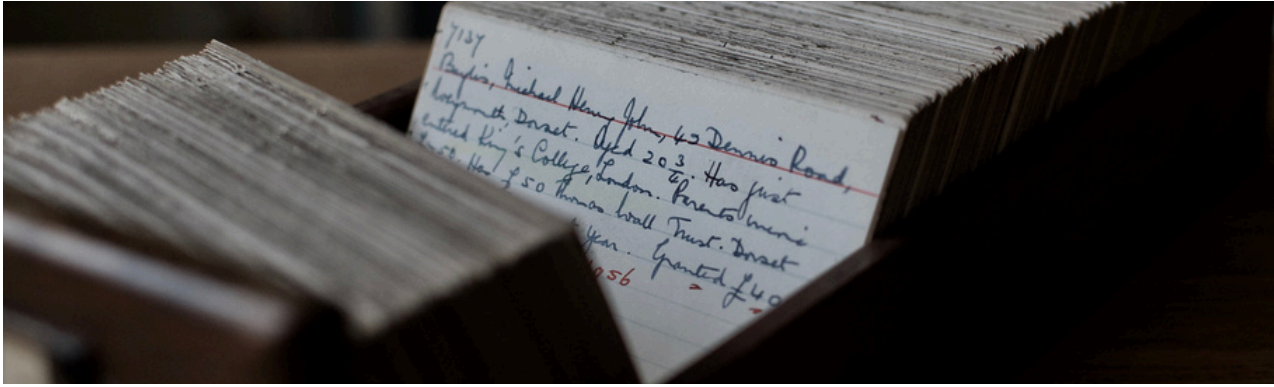 7137
Baylis, Michael Henry John, 42 Dennis Road,
Weymouth, Dorset. Aged 20 3/4. Has just
entered King's College, London. Parents means
50. Has £50 Thomas Wall Trust. Dorset
year. Granted £40
1956